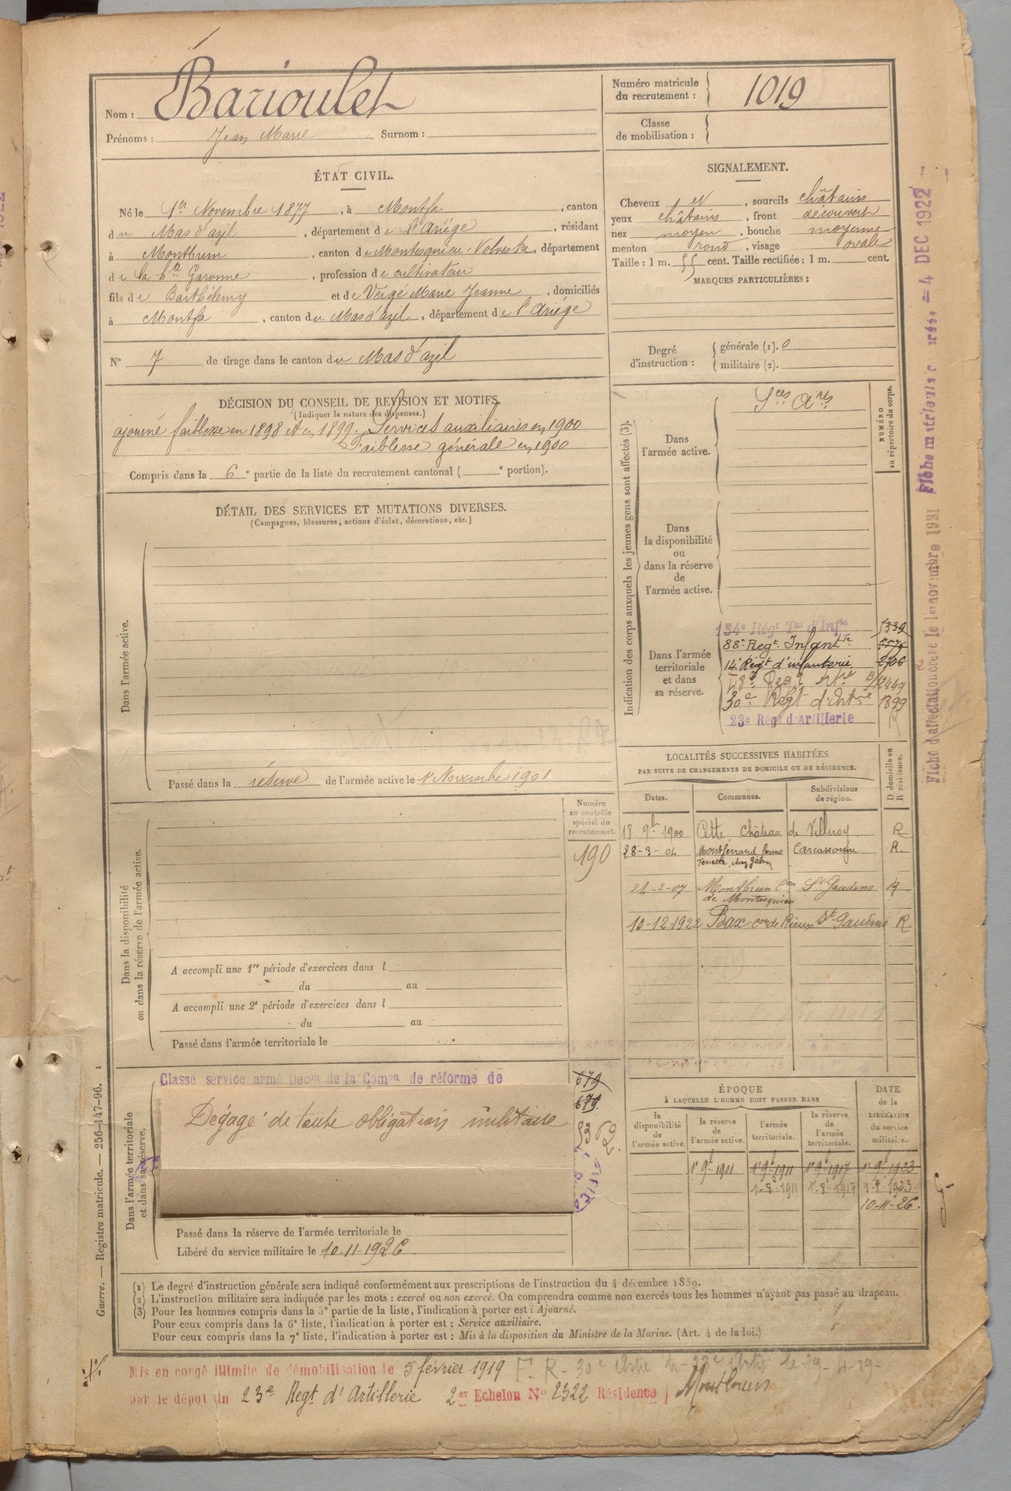 Nom : Barioulet
Prénoms : Jean Marie Surnom :
Numéro matricule du recrutement : 1019
Classe de mobilisation :
ÉTAT CIVIL.
Né le 1er Novembre 1877, à Montfa, canton
du Mas d'azil, département de l'Ariège, résidant
à Montbrun, canton de Montesquieu-Volvestre, département
de la Hte Garonne, profession de cultivateur
fils de Barthélemy et de Vergé Marie Jeanne, domiciliés
à Montfa, canton du Mas d'azil, département de l'Ariège
N° 7 de tirage dans le canton du Mas d'azil
SIGNALEMENT.
Cheveux et, sourcils châtains
yeux châtains, front découvert
nez moyen, bouche moyenne
menton rond, visage ovale
Taille : 1 m. 55 cent. Taille rectifiée : 1 m. cent.
MARQUES PARTICULIÈRES :
Degré d'instruction : générale (1). 0
militaire (2).
DÉCISION DU CONSEIL DE REVISION ET MOTIFS.
(Indiquer la nature des dispenses.)
ajourné faiblesse en 1898 et en 1899. Services auxiliaires en 1900
Faiblesse générale en 1900
Compris dans la 6e partie de la liste du recrutement cantonal ( e portion).
DÉTAIL DES SERVICES ET MUTATIONS DIVERSES.
(Campagnes, blessures, actions d'éclat, décorations, etc.)
Dans l'armée active.
Passé dans la réserve de l'armée active le 1er Novembre 1901
Indication des corps auxquels les jeunes gens sont affectés (3).
NUMÉRO au répertoire du corps.
Dans l'armée active.
Sces Ares
Dans la disponibilité ou dans la réserve de l'armée active.
Dans l'armée territoriale et dans sa réserve.
134e Régt Tal d'Infie 5339
88e Regt Infantie
14e Régt d'infanterie
30e Régt d'Artie 1899
23e Régt d'Artillerie R
LOCALITÉS SUCCESSIVES HABITÉES
PAR SUITE DE CHANGEMENTS DE DOMICILE OU DE RÉSIDENCE.
D domicile ou R résidence.
Dates. Communes. Subdivisions de région.
17 9bre 1900 Cette, château de Villeroy R
28-3-04 Montferrand Carcassonne R.
24-2-07 Montbrun con de Montesquieu St Gaudens R
10-12-1922 Bax con de Rieux St Gaudens R
Numéro au contrôle spécial du recrutement.
190
Dans la disponibilité ou dans la réserve de l'armée active.
A accompli une 1re période d'exercices dans l
du au
A accompli une 2e période d'exercices dans l
du au
Passé dans l'armée territoriale le
Dans l'armée territoriale et dans sa réserve.
Classe service armé Décon de la Comon de réforme de
Dégagé de toute obligation militaire
679
679
Passé dans la réserve de l'armée territoriale le
Libéré du service militaire le 10-11-1926
ÉPOQUE
À LAQUELLE L'HOMME DOIT PASSER DANS
la disponibilité de l'armée active. la réserve de l'armée active. l'armée territoriale. la réserve de l'armée territoriale.
DATE de la LIBÉRATION du service militaire.
1er 9bre 1901 1er 9bre 1911 1er 9bre 1917 1er 9bre 1923
1-8-1911 1-8-1917 1-8-1923
10-11-26.
(1) Le degré d'instruction générale sera indiqué conformément aux prescriptions de l'instruction du 4 décembre 1889.
(2) L'instruction militaire sera indiquée par les mots : exercé ou non exercé. On comprendra comme non exercés tous les hommes n'ayant pas passé au drapeau.
(3) Pour les hommes compris dans la 5e partie de la liste, l'indication à porter est : Ajourné.
Pour ceux compris dans la 6e liste, l'indication à porter est : Service auxiliaire.
Pour ceux compris dans la 7e liste, l'indication à porter est : Mis à la disposition du Ministre de la Marine. (Art. 4 de la loi.)
Mis en congé illimité de démobilisation le 5 février 1919
par le dépôt du 23e Régt d'Artillerie 2er Echelon No 2322 Résidence
Guerre. — Registre matricule. — 256-147-96.
Fiche d'affectation créée le 1er novembre 1931
Fiche matriculaire créée = 4 DEC 1922